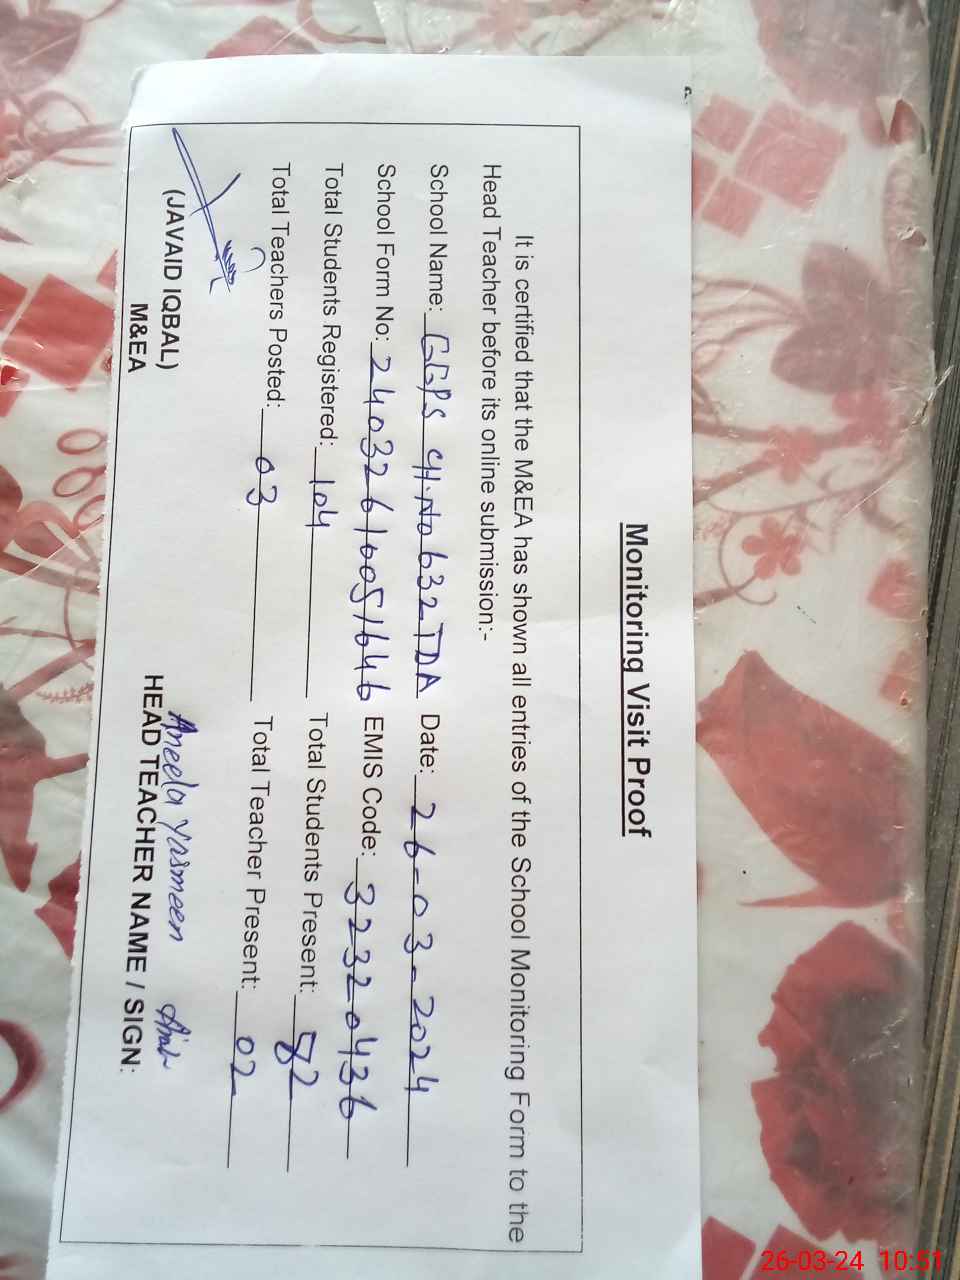 Monitoring Visit Proof
It is certified that the M&EA has shown all entries of the School Monitoring Form to the
Head Teacher before its online submission:-
School Name: GGPS CH.No 632 TDA Date: 26-03-2024
School Form No: 24032610051646 EMIS Code: 32320436
Total Students Registered: 104 Total Students Present: 82
Total Teachers Posted: 03 Total Teacher Present: 02
Aneela Yasmeen
(JAVAID IQBAL) HEAD TEACHER NAME / SIGN:
M&EA
26-03-24 10:51